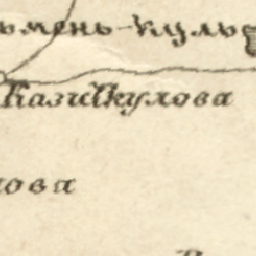 ьмень-куль
Казиккулова
лова